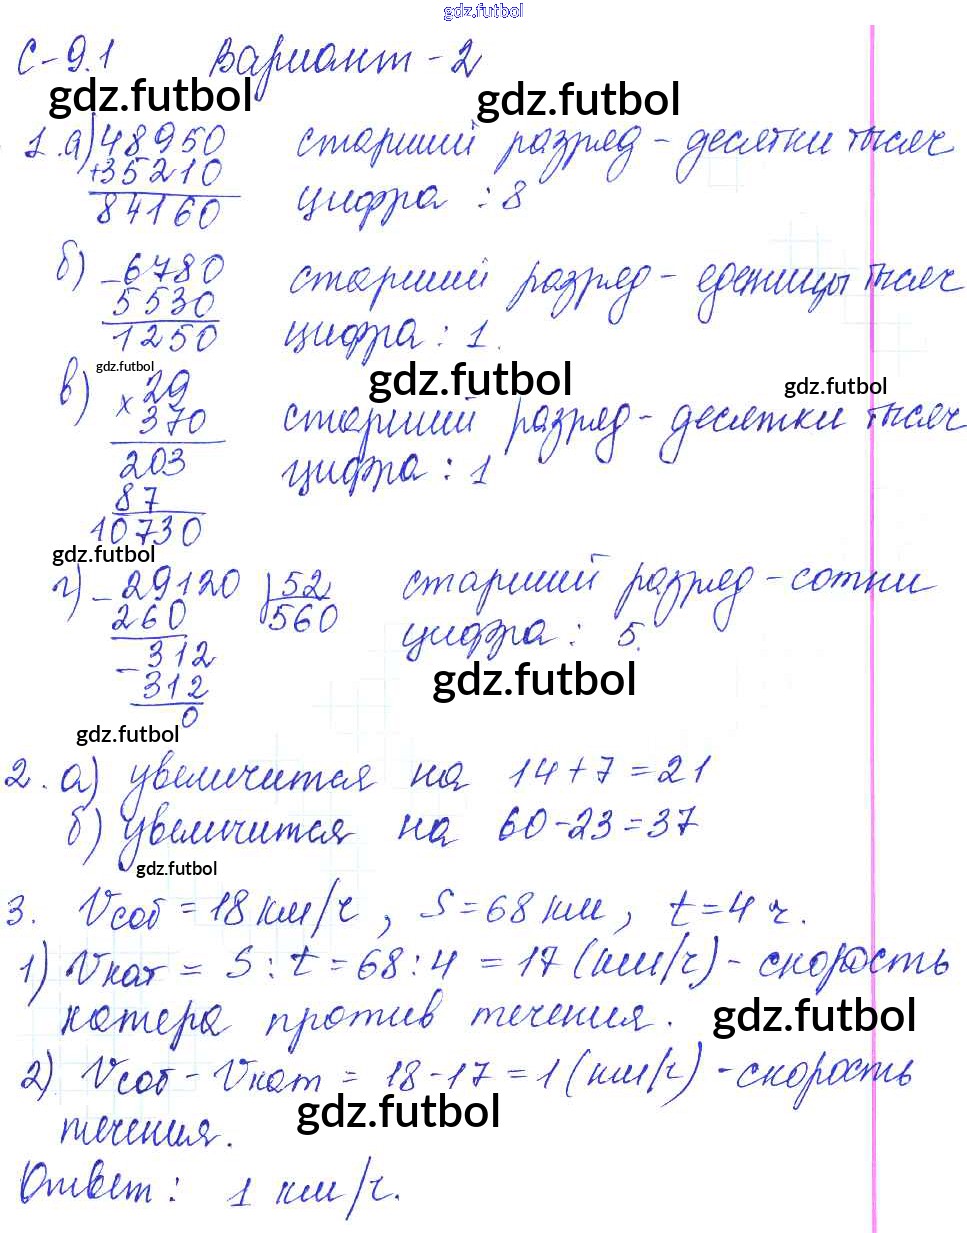 gdz.futbol
С-9.1 Вариант-2
gdz.futbol gdz.futbol
1.а) 48950 старший разряд - десятки тысяч
+35210 цифра : 8
84160
б) -6780 старший разряд - еденицы тысяч
5530 цифра : 1.
1250
gdz.futbol gdz.futbol gdz.futbol
в) x 29 старший разряд - десятки тысяч
370 цифра : 1
203
87
10730
gdz.futbol
г) -29120 52 старший разряд - сотни
260 560 цифра : 5.
-312 gdz.futbol
312
0
gdz.futbol
2. а) увеличится на 14+7=21
б) увеличится на 60-23=37
gdz.futbol
3. Vсоб = 18 км/ч, S=68 км, t=4 ч.
1) Vкат = S : t = 68 : 4 = 17 (км/ч) - скорость
катера против течения. gdz.futbol
2) Vсоб - Vкат = 18-17=1 (км/ч) - скорость
течения. gdz.futbol
Ответ : 1 км/ч.